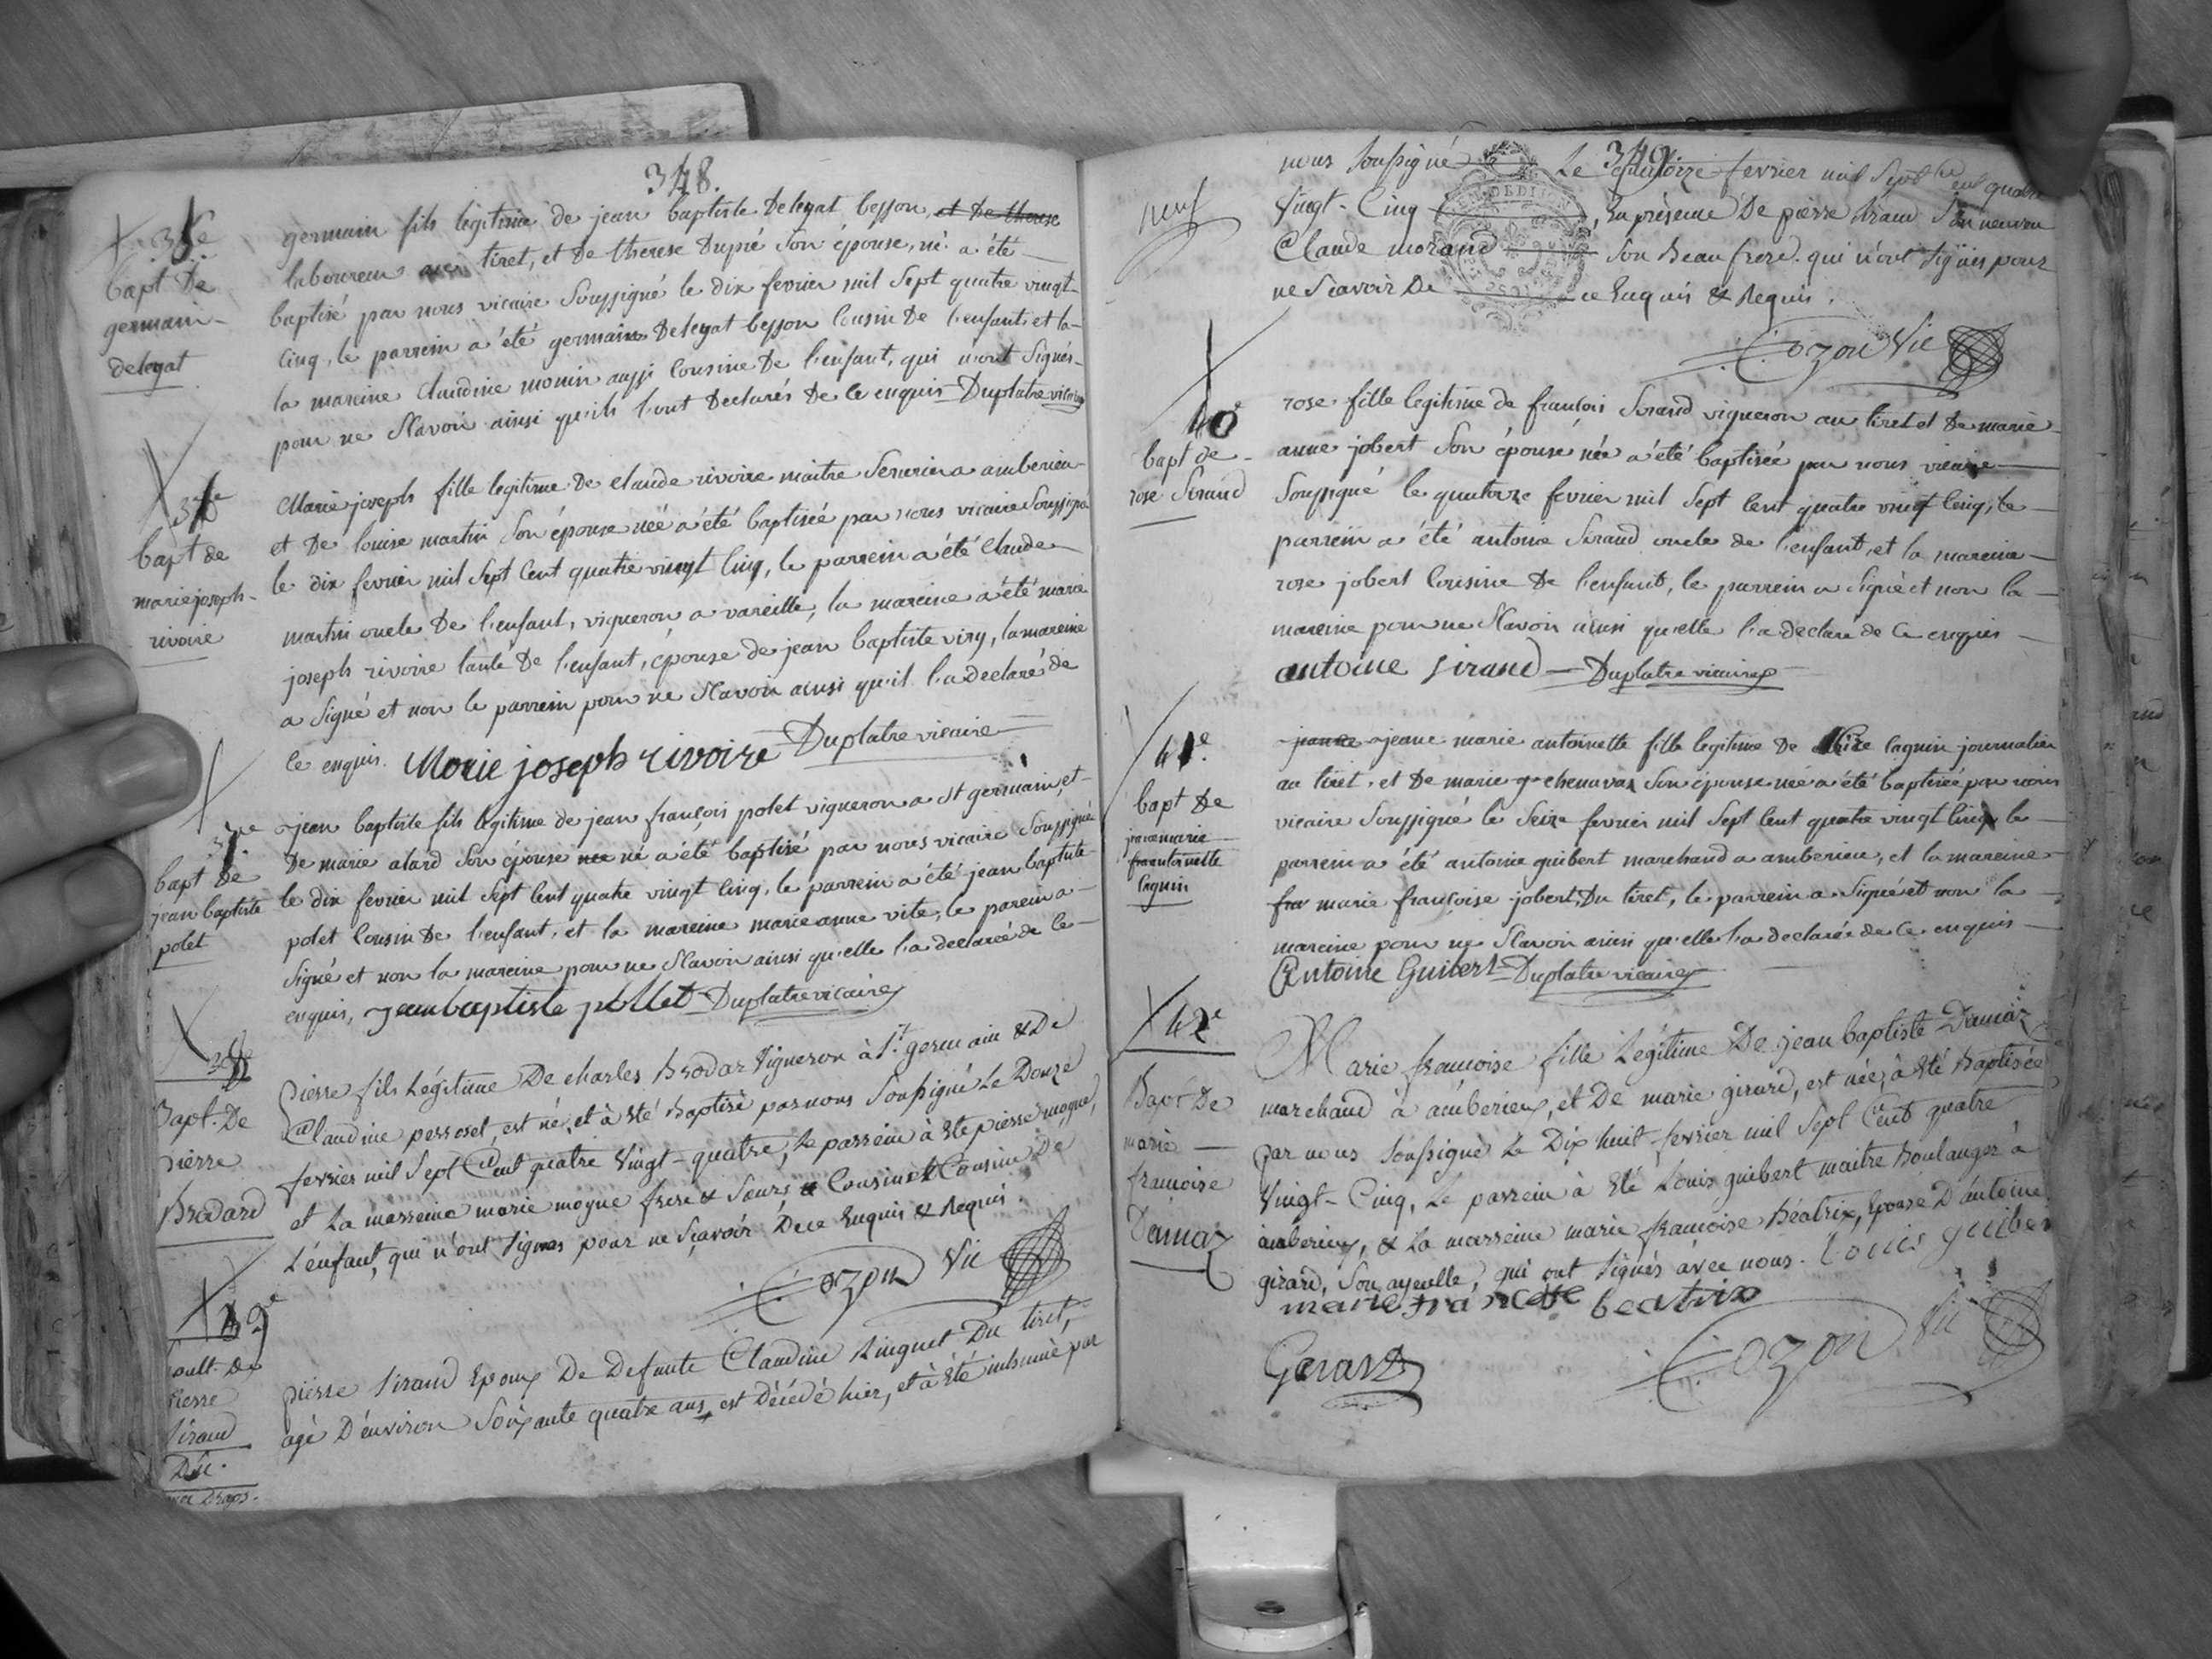 348.
bapt de
germain
delegat
germain fils legitime de jean baptiste Delegat besson, et De therese
laboureur tiret, et De therese Dupré Son épouse, né a été
baptisé par nous vicaire Soussigné le dix fevrier mil Sept quatre vingt
cinq, le parrein a été germain Delegat besson Cousin De l'enfant, et la
la mareine Claudine monin aussi Cousine De l'enfant, qui n'ont Signés
pour ne Scavoir ainsi qu'ils l'ont Declarés De Ce enquis Duplatre vicaire
bapt de
marie joseph
rivoire
Marie joseph fille legitime De Claude rivoire maitre Serurier a amberieu
et De louise martin Son épouse neé a été baptiseé par nous vicaire Soussigné
le dix fevrier mil Sept Cent quatre vingt Cinq, le parrein a été Claude
martin oncle De l'enfant, vigneron a vareille, la mareine a été marie
joseph rivoire tante De l'enfant, épouse de jean baptiste viry, la mareine
a Signé et non le parrein pour ne Scavoir ainsi qu'il l'a declaré de
Ce enquis. Marie joseph rivoire Duplatre vicaire
bapt De
jean baptiste
polet
jean baptiste fils legitime de jean françois polet vigneron a st germain, et
De marie alard Son épouse né a été baptisé par nous vicaire Soussigné
le dix fevrier mil Sept Cent quatre vingt Cinq, le parrein a été jean baptiste
polet Cousin De l'enfant, et la mareine marie anne vite, le parein a
Signé et non la mareine pour ne Scavoir ainsi qu'elle l'a declareé de Ce
enquis, jean baptiste pollet Duplatre vicaire
Bapt. De
pierre
Brodard
pierre fils Légitime De charles Brodar Vigneron à St. germain & De
Claudine perroset, est né, et à Eté Baptisé par nous Soussigné Le Douze
fevrier mil Sept Cent quatre Vingt-quatre, Le parrein à Ete pierre moyne,
et La marreine marie moyne frere & Soeurs & Cousin & Cousine De
L'enfant, qui n'ont Signés pour ne Sçavoir De ce Enquis & Requis.
Cozon Vic
39e
Sepult. De
Pierre
Siraud
pierre Siraud Epoux De Defunte Claudine Ringuet Du tiret,
agé D'environ Soixante quatre ans, est Décédé hier, et à Eté inhumé par
349.
neuf
nous Soussigné Le quatorze fevrier mil Sept Cent quatre
Vingt-Cinq, En présence De pierre Siraud Son neveu
Claude morand Son Beau frere. qui n'ont Signés pour
ne Scavoir De ce Enquis & Requis.
Cozon Vic
40e
bapt de
rose Siraud
rose fille legitime de françois Siraud vigneron au tiret et De marie
anne jobert Son épouse née a été baptisée par nous vicaire
Soussigné le quatorze fevrier mil Sept Cent quatre vingt Cinq, le
parrein a été antoine Siraud oncle de l'enfant, et la mareine
rose jobert Cousine De l'enfant, le parrein a Signé et non la
mareine pour ne Scavoir ainsi qu'elle l'a declaré de Ce enquis
antoine Siraud Duplatre vicaire
41e
bapt De
jeane marie
antoinette
Caguin
jeanne jeane marie antoinette fille legitime De Caguin journalier
au tiret, et De marie chenavas Son épouse neé a été baptiseé par nous
vicaire Soussigné le Seize fevrier mil Sept Cent quatre vingt Cinq le
parrein a été antoine guibert marchand a amberieu, et la mareine
fra marie françoise jobert Du tiret, le parrein a Signé et non la
mareine pour ne Scavoir ainsi qu'elle l'a declareé de Ce enquis
Antoine Guibert Duplatre vicaire
42e
Bapt De
marie
françoise
Damaz
Marie françoise fille Légitime De jean baptiste Damaz
marchand à amberieux, et De marie girard, est née, à Eté Baptisée
par nous Soussigné Le Dix huit fevrier mil Sept Cent quatre
Vingt-Cinq, Le parrein à Eté Louis guibert maitre Boulanger à
amberieux, & La marreine marie françoise Béatrix, Epouse D'antoine
girard, Son ayeulle, qui ont Signés avec nous. Louis guiber
marie francoise beatrix
Gerard Cozon Vic